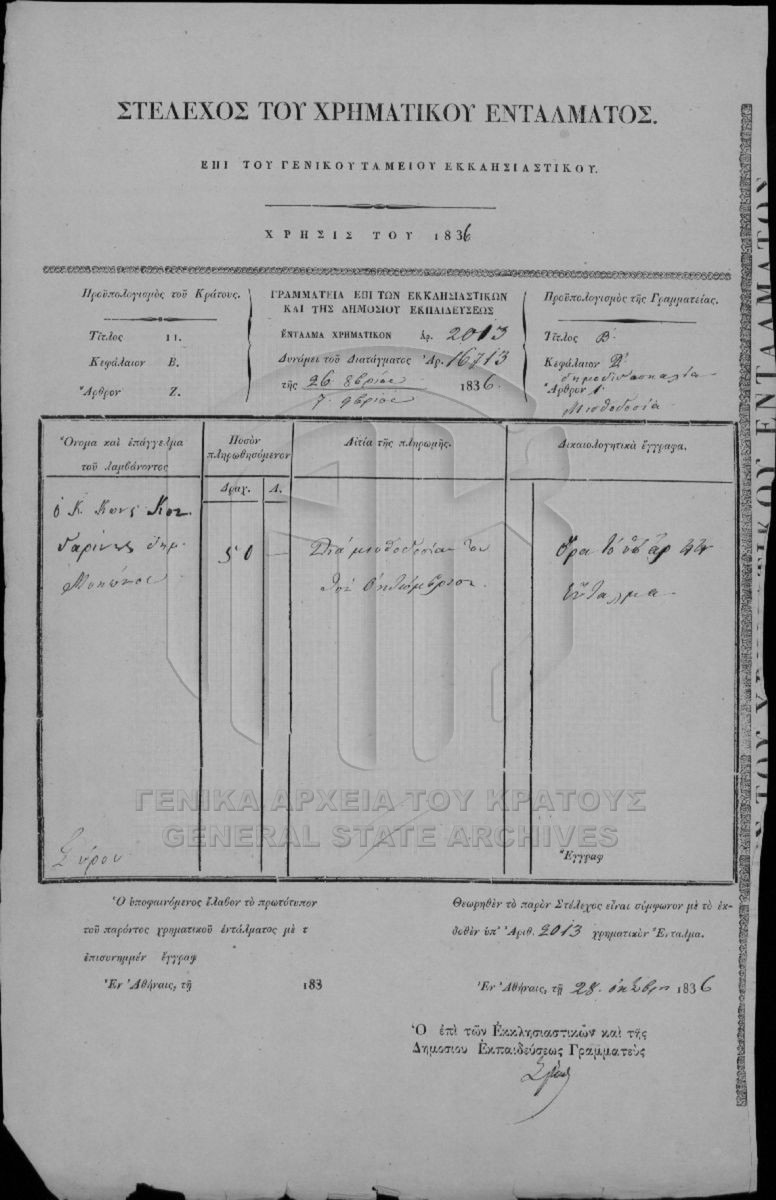 ΣΤΕΛΕΧΟΣ ΤΟΥ ΧΡΗΜΑΤΙΚΟΥ ΕΝΤΑΛΜΑΤΟΣ.
ΕΠΙ ΤΟΥ ΓΕΝΙΚΟΥ ΤΑΜΕΙΟΥ ΕΚΚΛΗΣΙΑΣΤΙΚΟΥ.
ΧΡΗΣΙΣ ΤΟΥ 1836
Προϋπολογισμὸς τοῦ Κράτους.
Τίτλος 11.
Κεφάλαιον Β.
Ἄρθρον Ζ.
ΓΡΑΜΜΑΤΕΙΑ ΕΠΙ ΤΩΝ ΕΚΚΛΗΣΙΑΣΤΙΚΩΝ
ΚΑΙ ΤΗΣ ΔΗΜΟΣΙΟΥ ΕΚΠΑΙΔΕΥΣΕΩΣ
ΕΝΤΑΛΜΑ ΧΡΗΜΑΤΙΚΟΝ Ἀρ. 2013
Δυνάμει τοῦ Διατάγματος Ἀρ. 16713
τῆς 26 8βρίου 1836.
7. 9βρίου
Προϋπολογισμὸς τῆς Γραμματείας.
Τίτλος Β.
Κεφάλαιον
δημοδιδασκαλία
Ἄρθρον 1.
Μισθοδοσία
Ὄνομα καὶ ἐπάγγελμα
τοῦ λαμβάνοντος
Ποσὸν
πληρωθησόμενον
Δραχ. Λ.
Αἰτία τῆς πληρωμῆς.
Δικαιολογητικὰ ἔγγραφα.
ὁ Κ. Κων.
δημ.
Μυκώνου
50 —
Διὰ μισθοδοσίαν του
τοῦ Ὀκτωμβρίου.
Ὅρα τὸ ὑπ' ἀρ
Ἔνταλμα
Σύρου
Ἔγγραφ
Ὁ ὑποφαινόμενος ἔλαβον τὸ πρωτότυπον
τοῦ παρόντος χρηματικοῦ ἐντάλματος μὲ τ
ἐπισυνημμέν ἔγγραφ
Ἐν Ἀθήναις, τῇ 183
Θεωρηθὲν τὸ παρὸν Στέλεχος εἶναι σύμφωνον μὲ τὸ ἐκ-
δοθὲν ὑπ' Ἀριθ. 2013 χρηματικὸν Ἔνταλμα.
Ἐν Ἀθήναις, τῇ 28. ὀκτωβρίου 1836
Ὁ ἐπὶ τῶν Ἐκκλησιαστικῶν καὶ τῆς
Δημοσίου Ἐκπαιδεύσεως Γραμματεὺς
ΓΕΝΙΚΑ ΑΡΧΕΙΑ ΤΟΥ ΚΡΑΤΟΥΣ
GENERAL STATE ARCHIVES